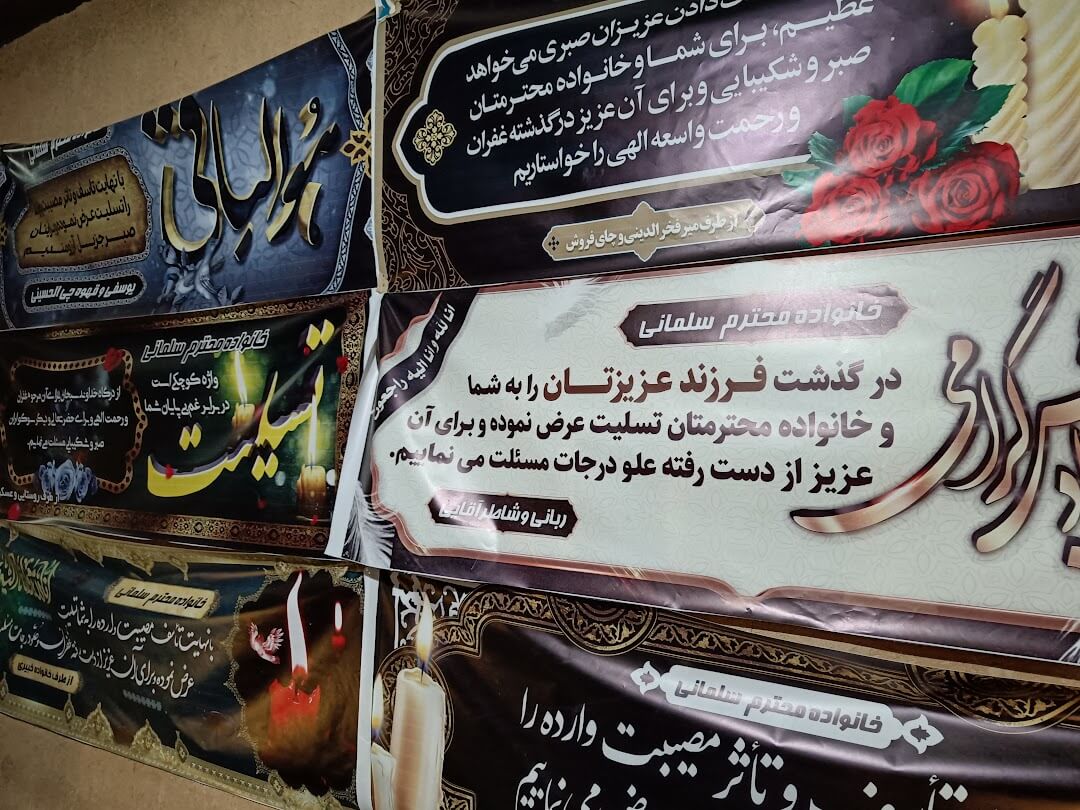 دادن عزیزان صبری می‌خواهد
عظیم، برای شما و خانواده محترمتان
صبر و شکیبایی و برای آن عزیز درگذشته غفران
و رحمت واسعه الهی را خواستاریم
از طرف میر فخرالدینی و چای فروش
هو الباقی
محترم سلمانی
با نهایت تاسف و تاثر
را تسلیت عرض نموده
صبر جزیل
یوسفی و قهوه چی الحسینی
انا لله و انا الیه راجعون
خانواده محترم سلمانی
در گذشت فرزند عزیزتان را به شما
و خانواده محترمتان تسلیت عرض نموده و برای آن
عزیز از دست رفته علو درجات مسئلت می نماییم.
ربانی و شاطر آقایی
گرامی
خانواده محترم سلمانی
تسلیت
واژه کوچکی است
در برابر غم بی پایان شما
از درگاه خداوند
و رحمت الهی و برای
صبر و شکیبایی مسئلت می نماییم.
از طرف روستایی و عسکر
خانواده محترم سلمانی
با نهایت تأسف مصیبت وارده را به شما تسلیت
عرض نموده برای آن عزیز از دست رفته غفران
از طرف خانواده خبیری
خانواده محترم سلمانی
و تأثر مصیبت وارده را
می نماییم